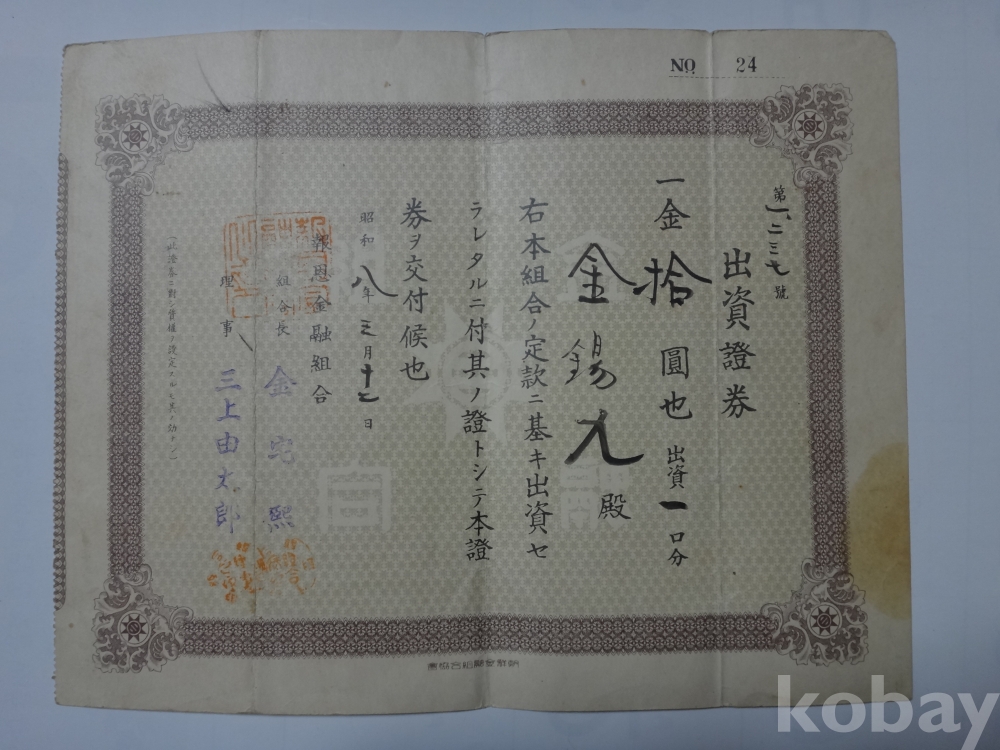 NO 24
第一、二三七號
出資證券
一金拾圓也 出資一口分
金錫九殿
右本組合ノ定款ニ基キ出資セ
ラレタルニ付其ノ證トシテ本證
券ヲ交付候也
昭和八年三月十七日
報恩金融組合
組合長 金宅熙
理事 三上由太郎
kobay